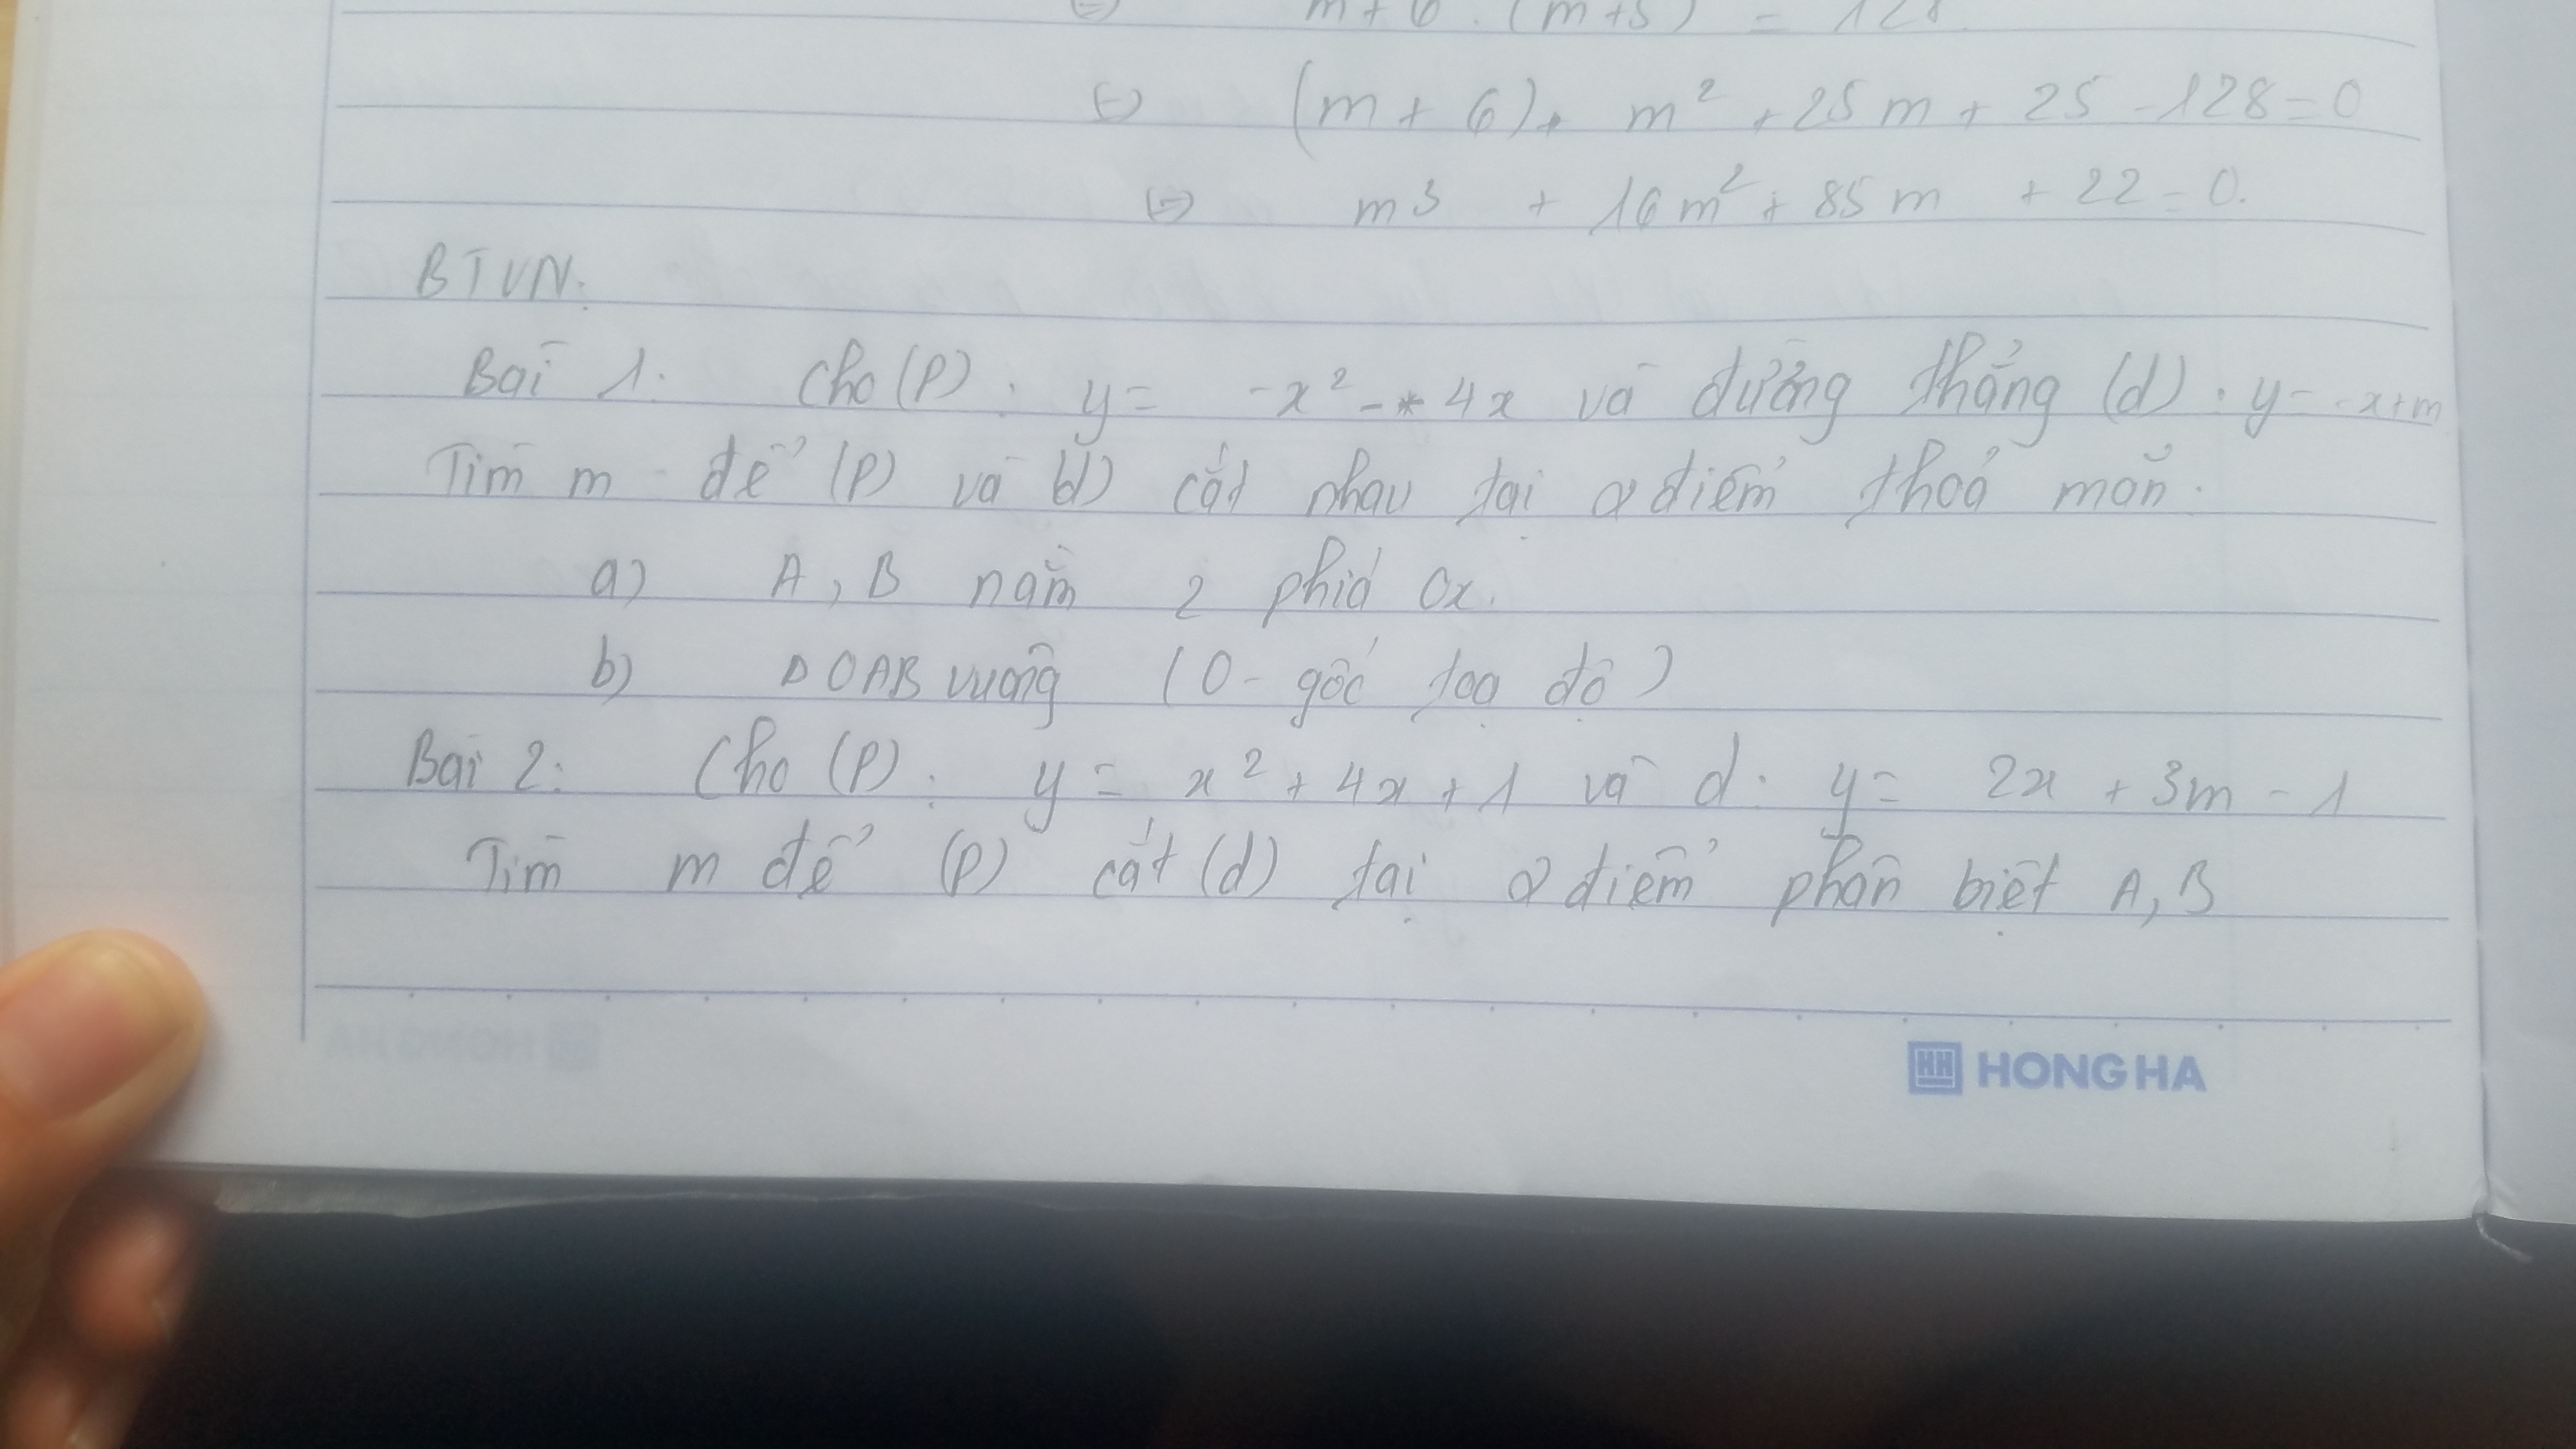 (=) m + 6 . (m+5) = 128
(=) (m + 6) . m² + 25m + 25 - 128 = 0
(=) m3 + 16m² + 85m + 22 = 0.
BTVN:
Bài 1: Cho (P): y = -x² - 4x và đường thẳng (d): y = -x+m
Tìm m để (P) và (d) cắt nhau tại 2 điểm thoả mãn.
a) A, B nằm 2 phía Ox.
b) Δ OAB vuông (O - gốc toạ độ)
Bài 2: Cho (P): y = x² + 4x + 1 và d: y = 2x + 3m - 1
Tìm m để (P) cắt (d) tại 2 điểm phân biệt A, B
HH HONG HA